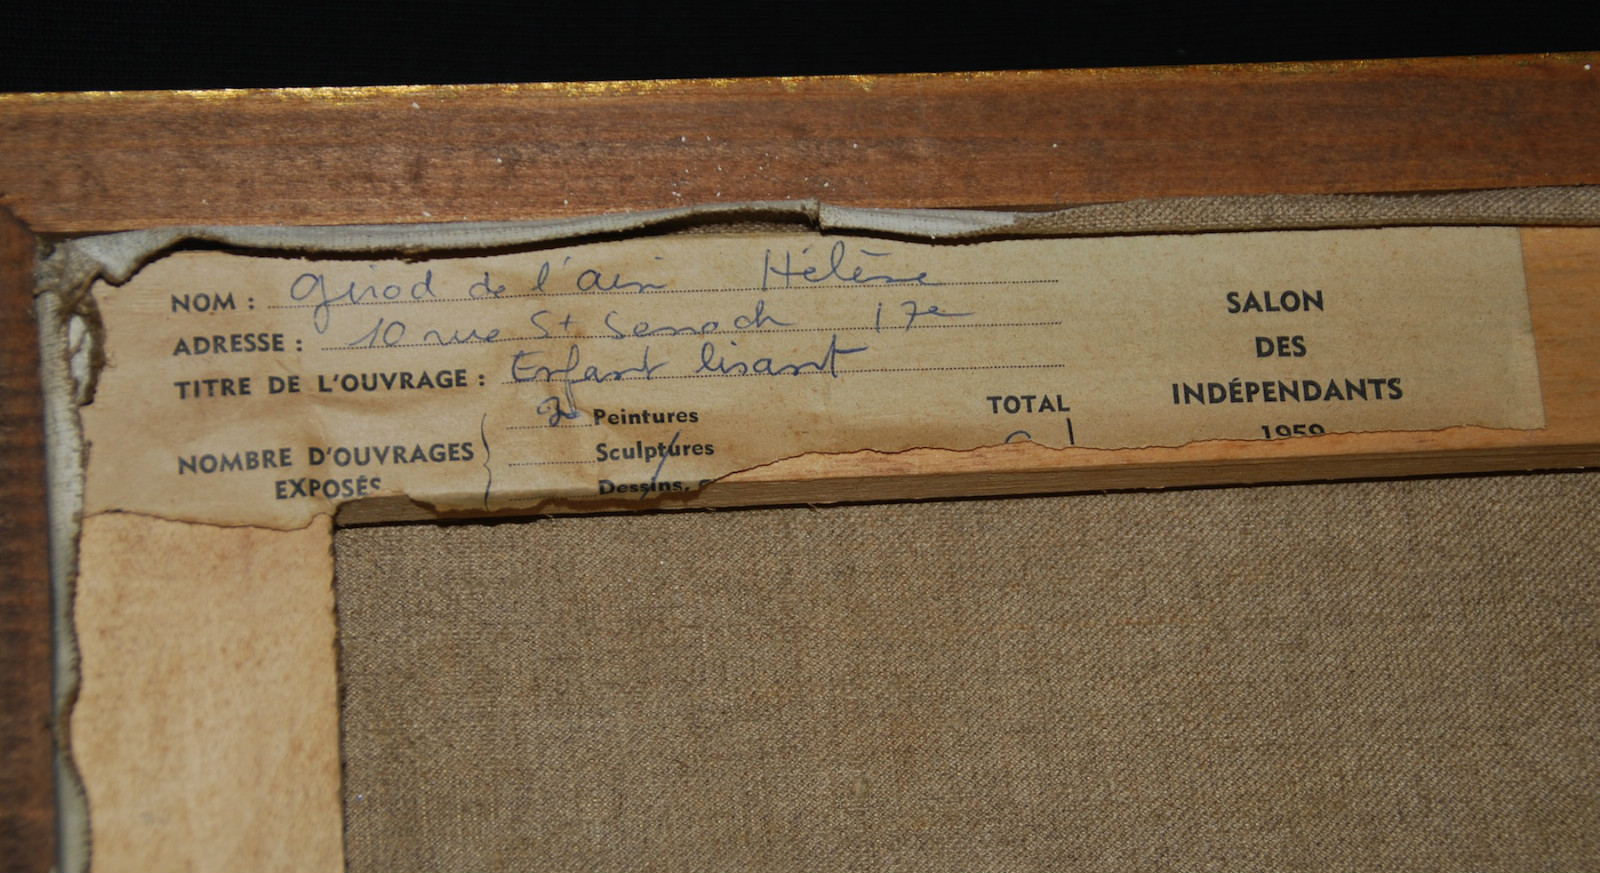 NOM : Girod de l'ain Hélène
ADRESSE : 10 rue St Senoch 17e
TITRE DE L'OUVRAGE : Enfant lisant
NOMBRE D'OUVRAGES
EXPOSÉS
2 Peintures
Sculptures
Dessins,
TOTAL
SALON
DES
INDÉPENDANTS
1959